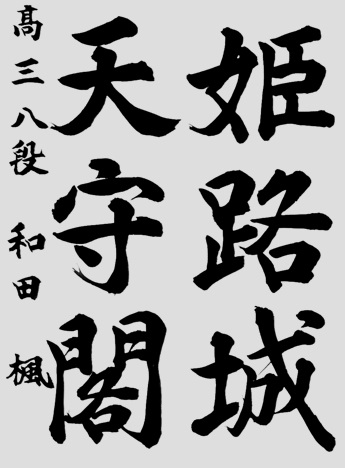 姫路城
天守閣
髙三八段 和田 楓